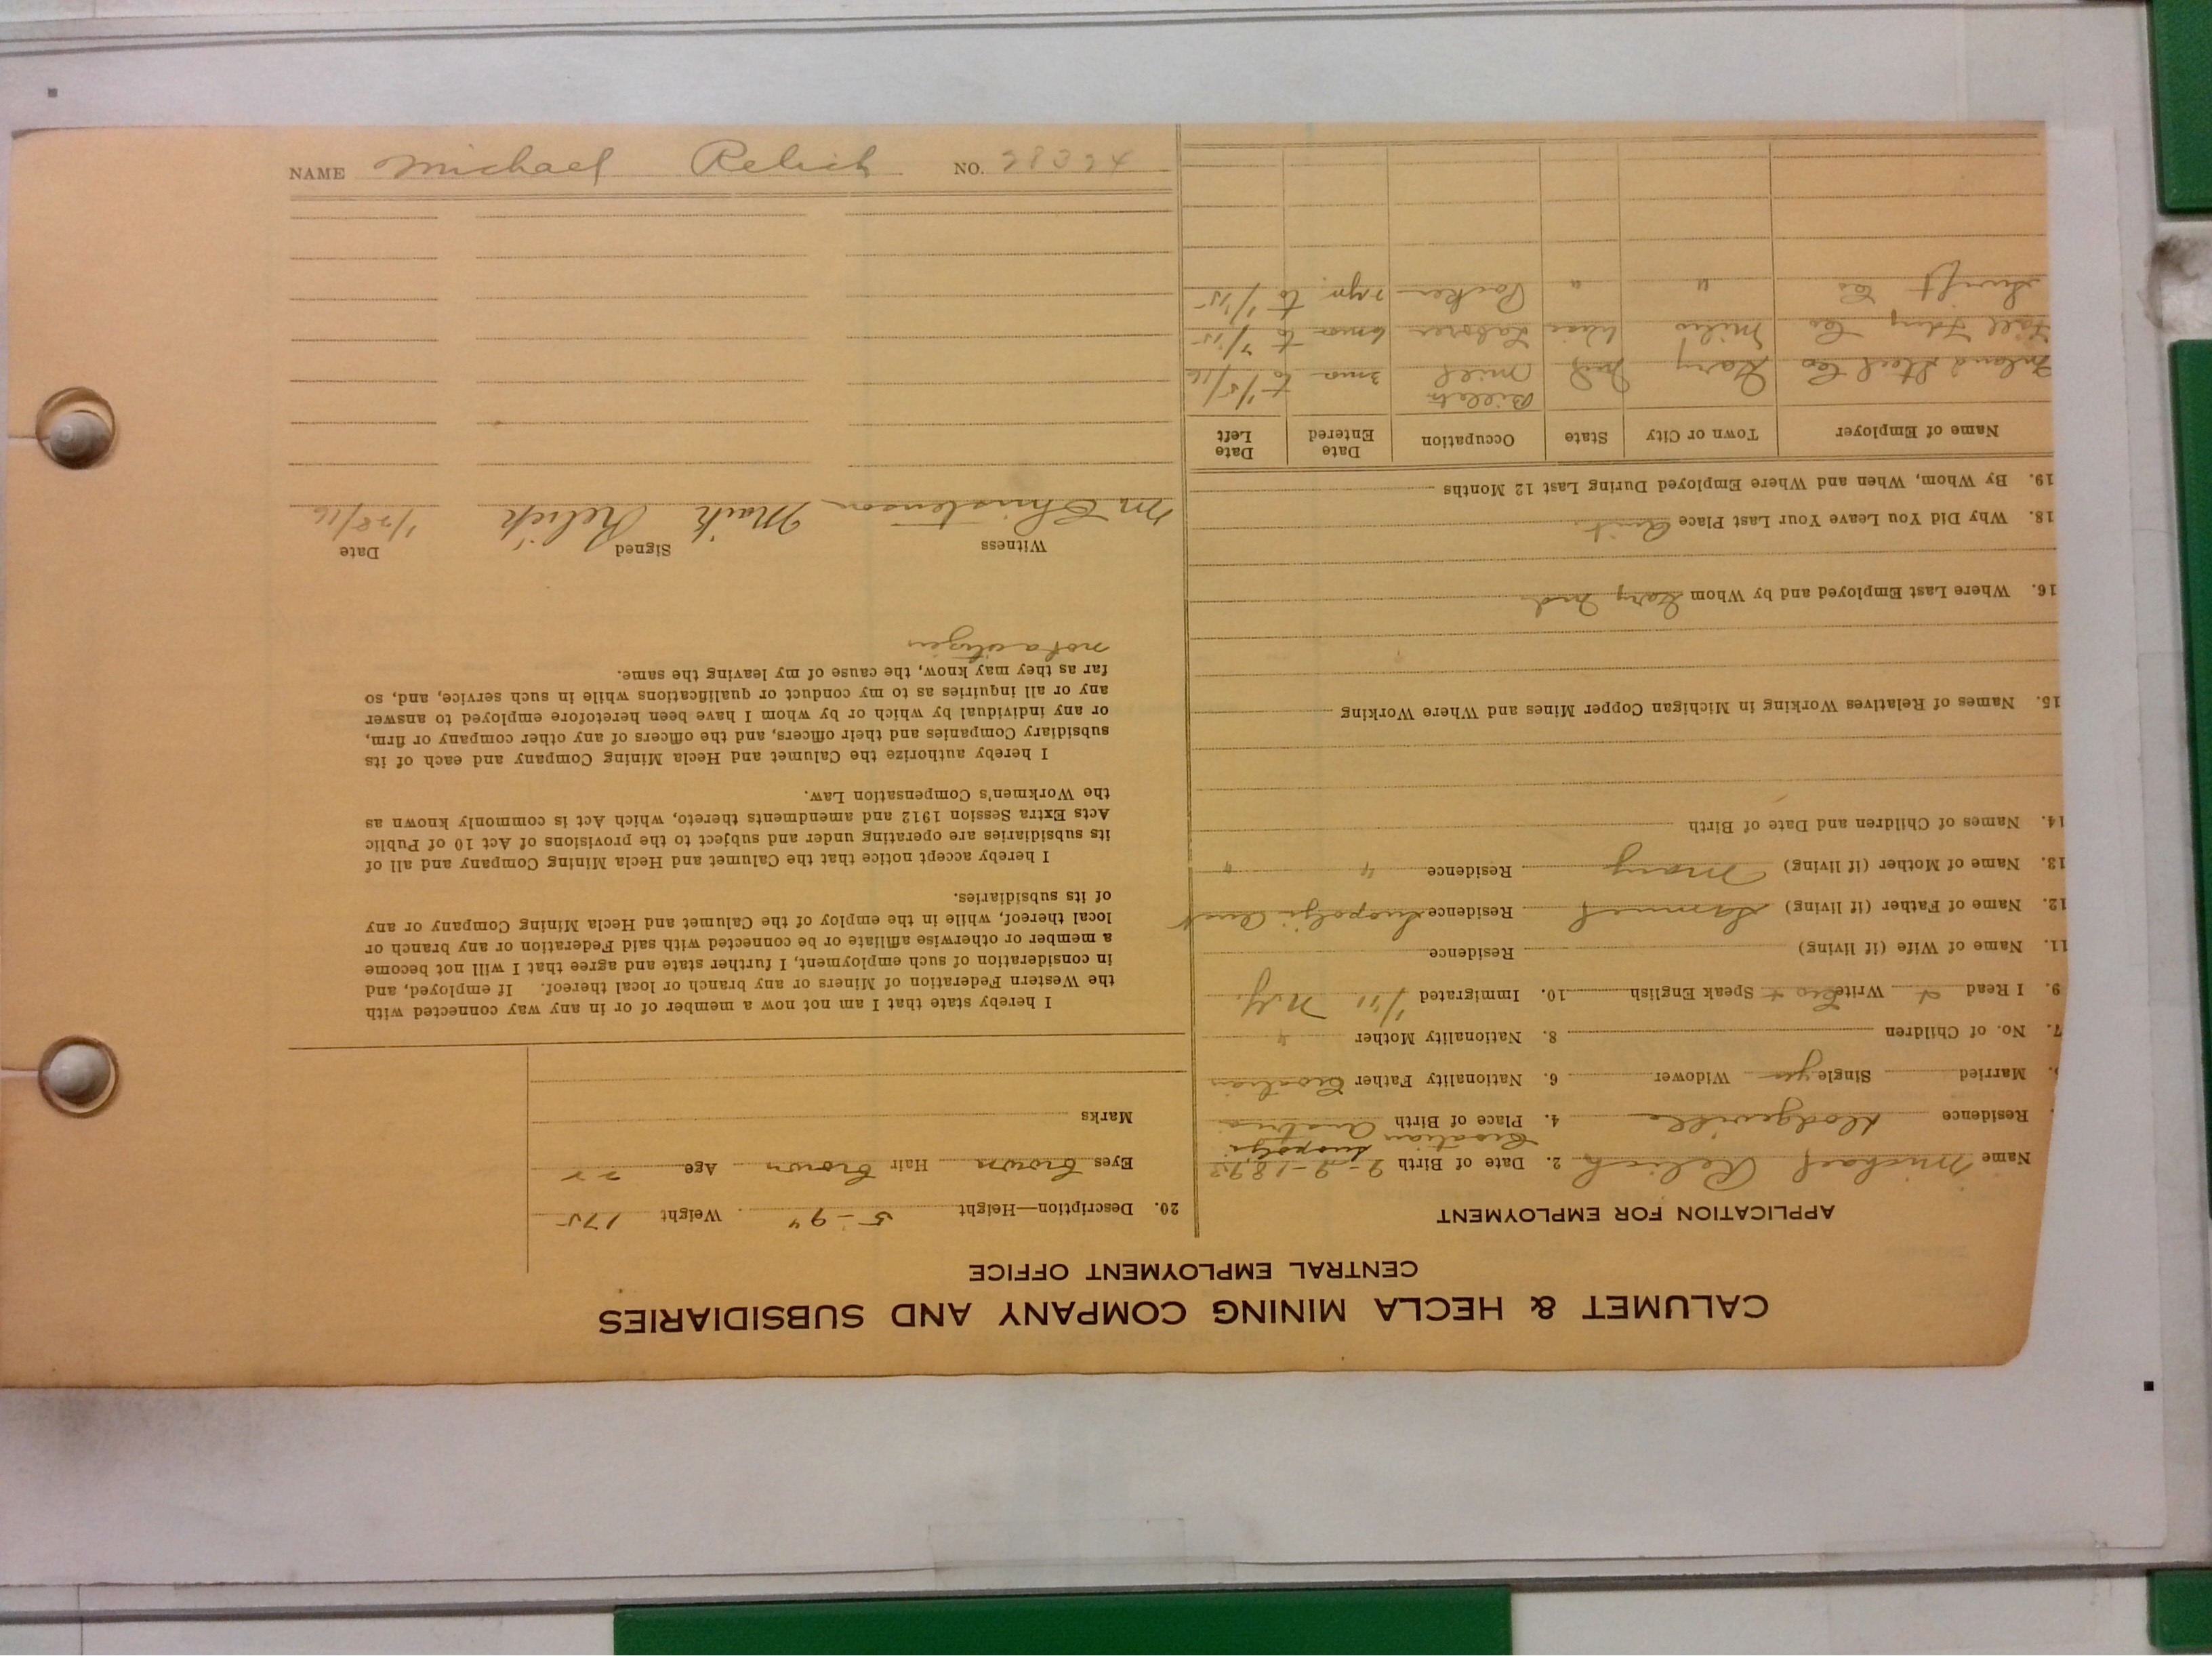 CALUMET & HECLA MINING COMPANY AND SUBSIDIARIES
CENTRAL EMPLOYMENT OFFICE
APPLICATION FOR EMPLOYMENT
Name Michael Relich 2. Date of Birth 9-9-1893
Residence Dodgeville 4. Place of Birth Croatian Austria
Married Single yes Widower 6. Nationality Father Croatian
7. No. of Children 8. Nationality Mother "
9. I Read Write Speak English 10. Immigrated 1/11 N.Y.
11. Name of Wife (if living) Residence
12. Name of Father (if living) Samuel Residence Aust
13. Name of Mother (if living) Mary Residence " "
14. Names of Children and Date of Birth
15. Names of Relatives Working in Michigan Copper Mines and Where Working
16. Where Last Employed and by Whom Gary Ind
18. Why Did You Leave Your Last Place Quit
19. By Whom, When and Where Employed During Last 12 Months
Name of Employer Town or City State Occupation Date Entered Date Left
Inland Steel Co Gary Ind Billets Mill 3 mo to 1/5/16
Co Milw Wisc Laborer 6 mo to 7/15
Swift Co " " Packer 2 yr to 1/15
20. Description—Height 5-9¼ Weight 175
Eyes brown Hair brown Age 22
Marks
I hereby state that I am not now a member of or in any way connected with
the Western Federation of Miners or any branch or local thereof. If employed, and
in consideration of such employment, I further state and agree that I will not become
a member or otherwise affiliate or be connected with said Federation or any branch or
local thereof, while in the employ of the Calumet and Hecla Mining Company or any
of its subsidiaries.
I hereby accept notice that the Calumet and Hecla Mining Company and all of
its subsidiaries are operating under and subject to the provisions of Act 10 of Public
Acts Extra Session 1912 and amendments thereto, which Act is commonly known as
the Workmen's Compensation Law.
I hereby authorize the Calumet and Hecla Mining Company and each of its
subsidiary Companies and their officers, and the officers of any other company or firm,
or any individual by which or by whom I have been heretofore employed to answer
any or all inquiries as to my conduct or qualifications while in such service, and, so
far as they may know, the cause of my leaving the same.
not a citizen
Witness Signed Date
M Christenson Maik Relich 1/28/16
NAME Michael Relich NO. 28324